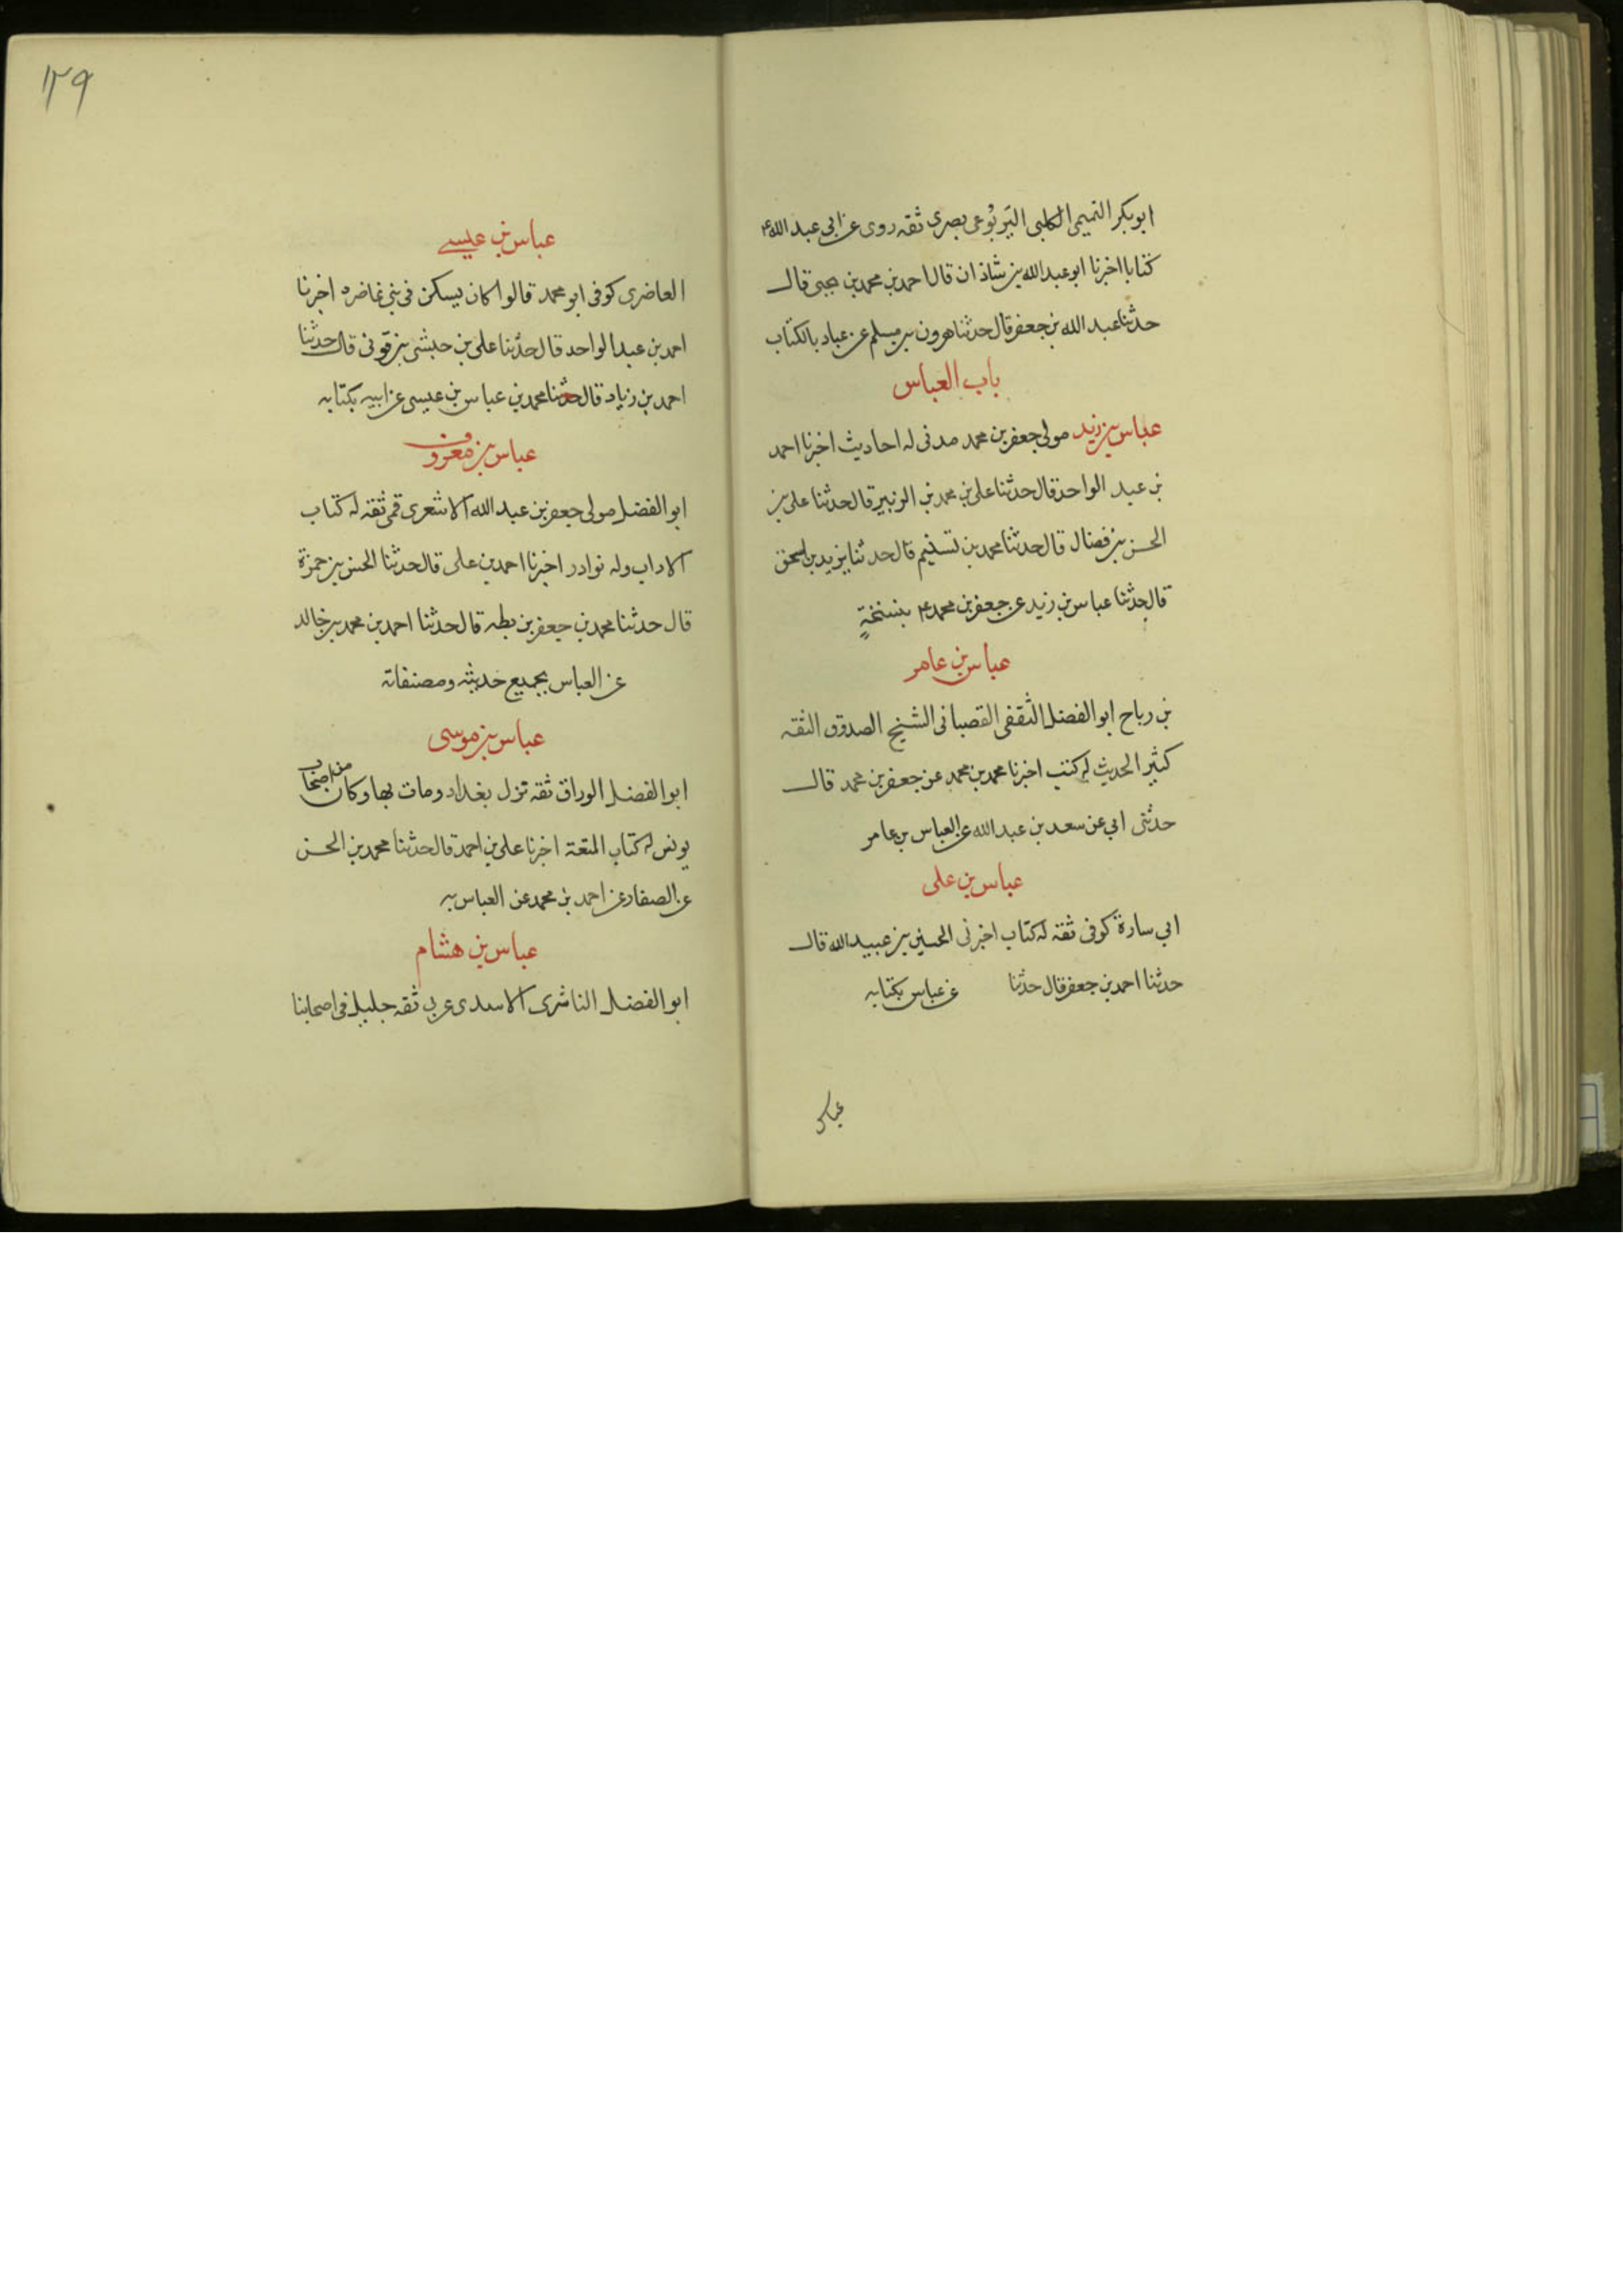 ابو بكر التميمى الكلبى اليَربُوعى بصرى ثقه روى عن ابى عبد الله ع
كتابا اخبرنا ابو عبد الله بن شاذان قال احمد بن محمد بن يحيى قال
حدثنا عبد الله بن جعفر قال حدثنا هرون بن مسلم عن عباد بالكتاب
باب العباس
عباس بن زيد مولى جعفر بن محمد مدنى له احاديث اخبرنا احمد
بن عبد الواحد قال حدثنا على بن محمد بن الزبير قال حدثنا على بن
الحسن بن فضال قال حدثنا محمد بن تسنيم قال حدثنا يزيد بن اسحق
قال حدثنا عباس بن زيد عن جعفر بن محمد ع بنسخةٍ
عباس بن عامر
بن رباح ابو الفضل الثقفى القصبانى الشيخ الصدوق الثقه
كثير الحديث له كتب اخبرنا محمد بن محمد عن جعفر بن محمد قال
حدثنى ابي عن سعد بن عبد الله عن العباس بن عامر
عباس بن على
ابي سارة كوفى ثقة له كتاب اخبرنى الحسين بن عبيد الله قال
حدثنا احمد بن جعفر قال حدثنا عن عباس بكتابه
عباس
١٢٩
عباس بن عيسى
الغاضرى كوفى ابو محمد قالوا كان يسكن فى بنى غاضره اخبرنا
احمد بن عبد الواحد قال حدثنا على بن حبشى بن قونى قال حدثنا
احمد بن زياد قال حدثنا محمد بن عباس بن عيسى عن ابيه بكتابه
عباس بن معروف
ابو الفضل مولى جعفر بن عبد الله الاشعرى قمى ثقه له كتاب
الاداب وله نوادر اخبرنا احمد بن على قال حدثنا الحسن بن حمزة
قال حدثنا محمد بن جعفر بن بطه قال حدثنا احمد بن محمد بن خالد
عن العباس بجميع حديثه ومصنفاته
عباس بن موسى
ابو الفضل الوراق ثقه نزل بغداد ومات بها وكان من اصحاب
يونس له كتاب المتعة اخبرنا على بن احمد قال حدثنا محمد بن الحسن
عن الصفار عن احمد بن محمد عن العباس به
عباس بن هشام
ابو الفضل الناشرى الاسدى عربى ثقه جليل فى اصحابنا